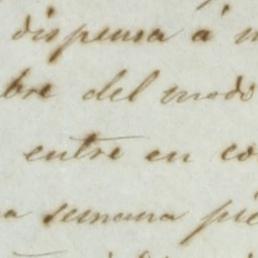 dispensa á
bre del modo
entre en co
a semana pi